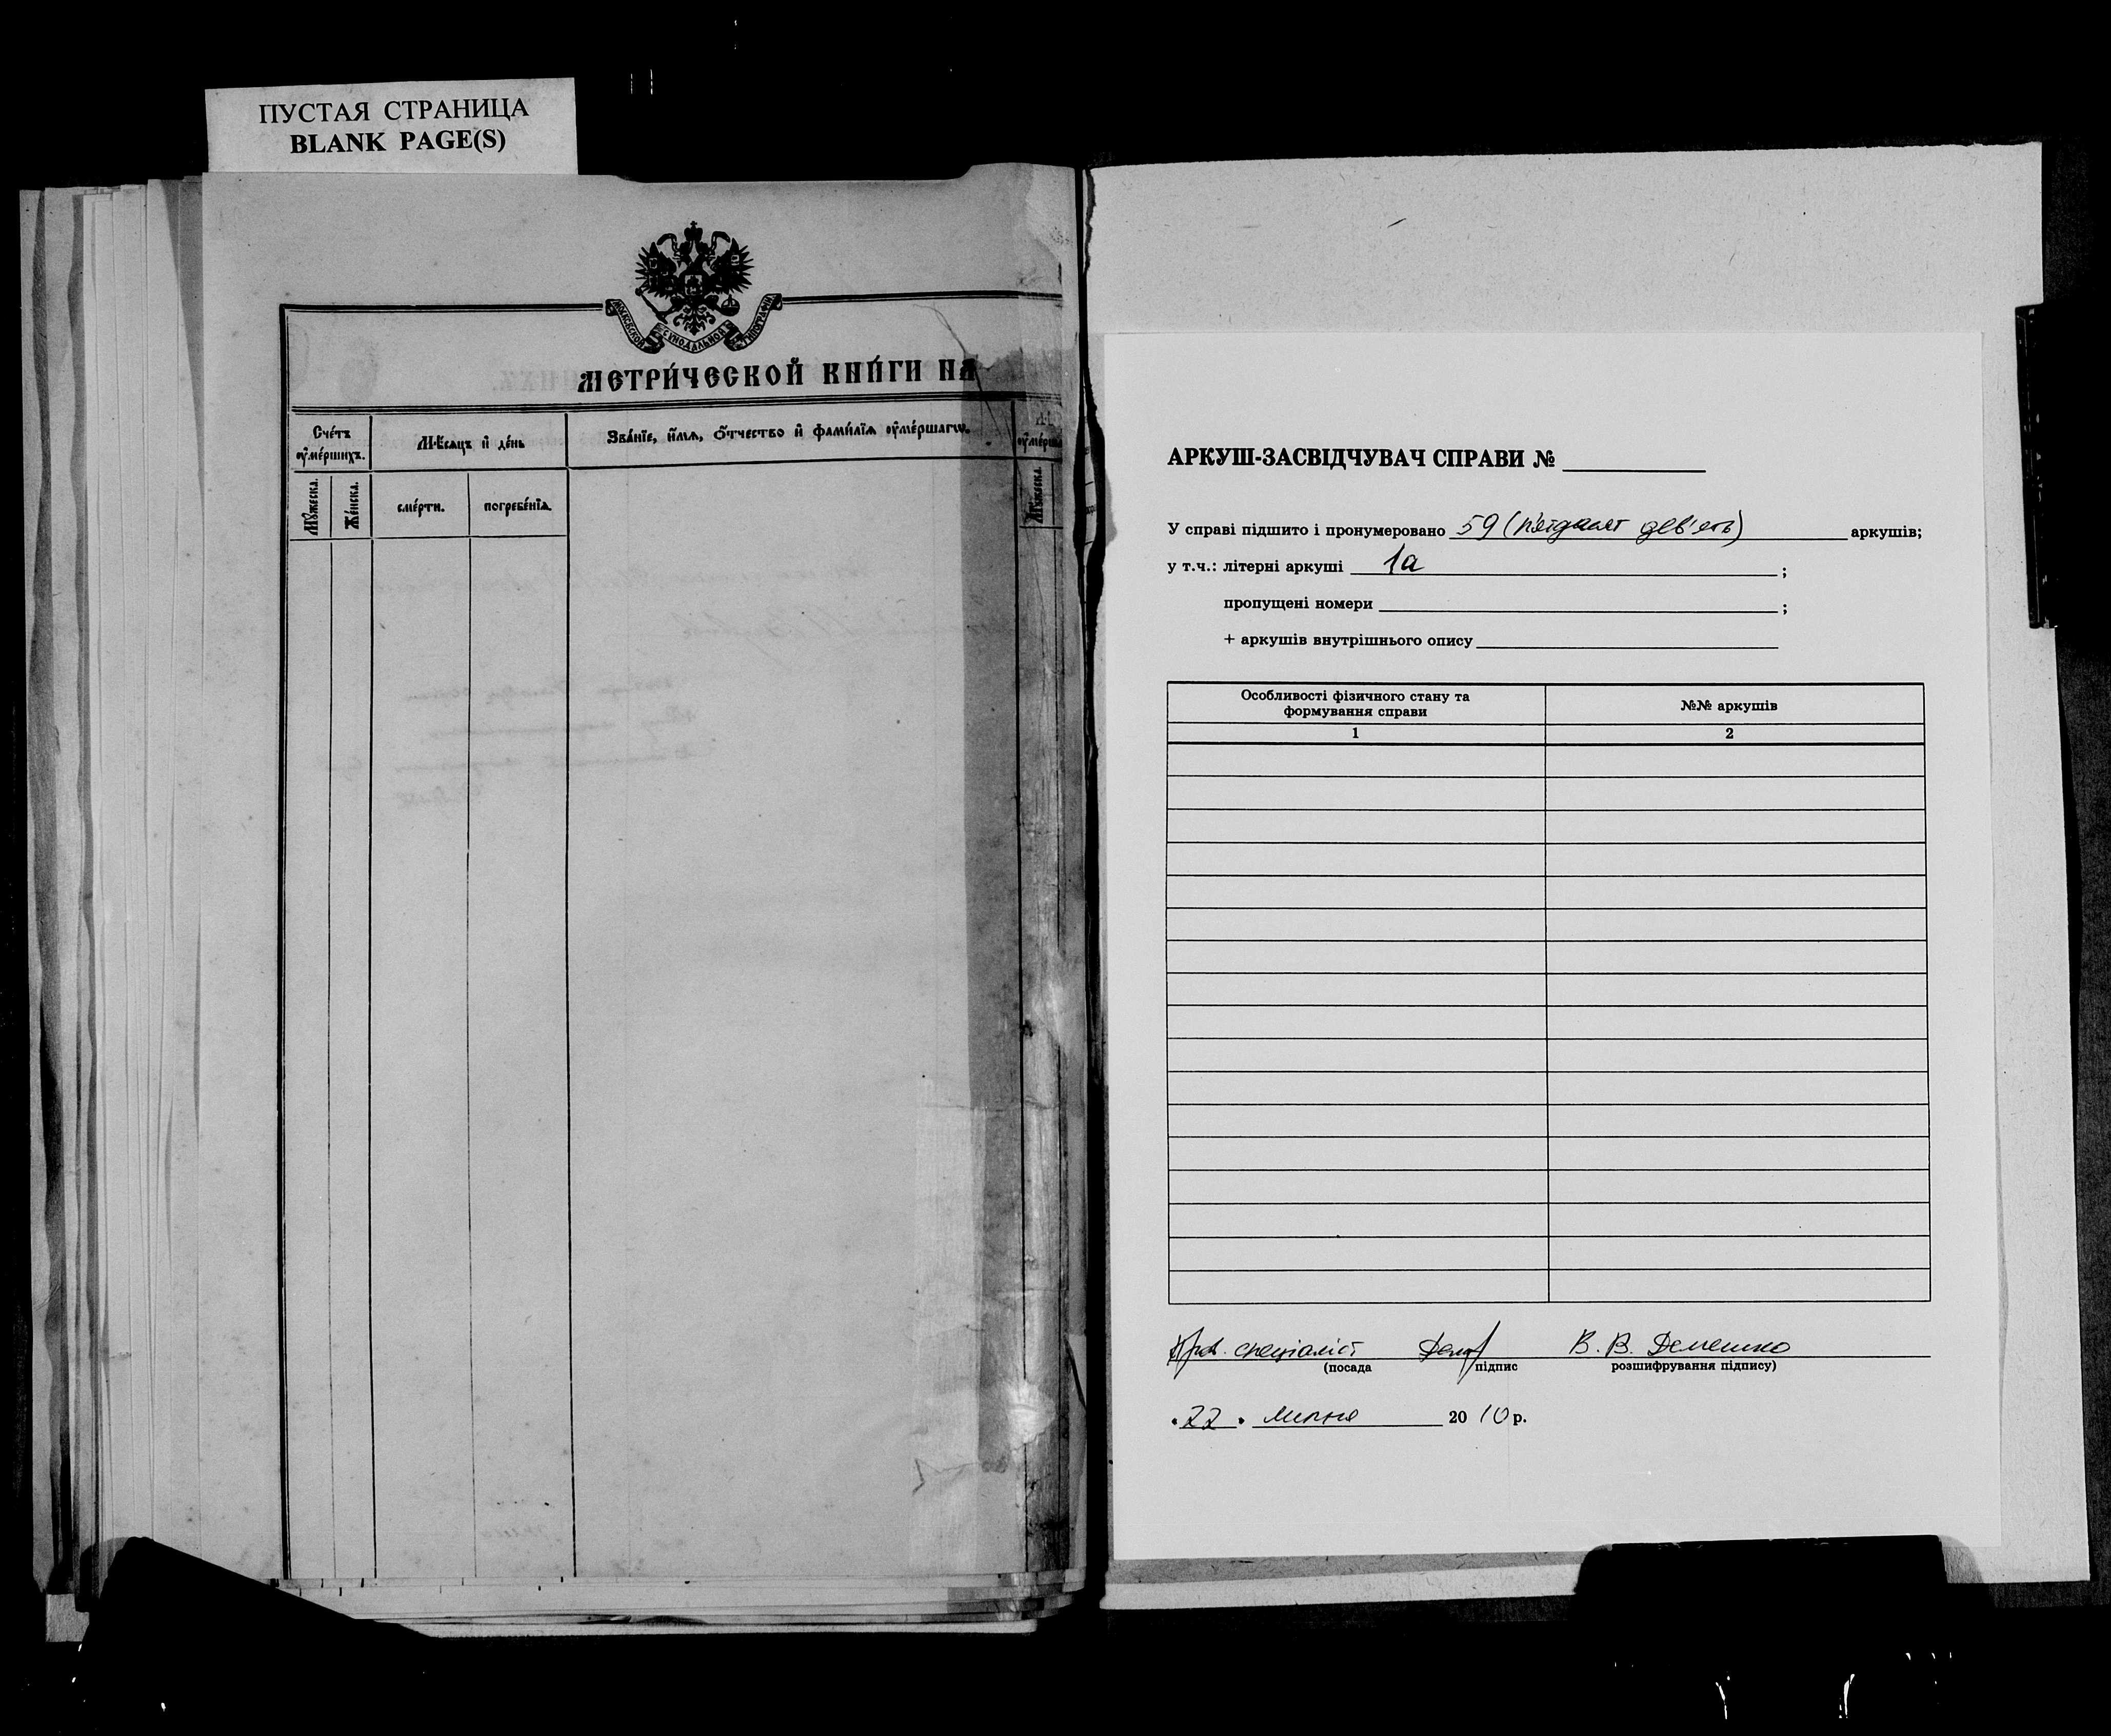 ПУСТАЯ СТРАНИЦА
BLANK PAGE(S)
МОСКОВСКОЙ СѴНОДАЛЬНОЙ ТИПОГРАФІИ
МЕТРИ́ЧЕСКОЙ КНИ́ГИ НА
Сче́тъ оу҆ме́ршихъ.
Мѣ́сѧцъ и҆ де́нь
Зва́нїе, и҆́мѧ, ѻ҆́тчество и҆ фами́лїѧ оу҆ме́ршагѡ.
Мꙋ́жеска.
Же́нска.
сме́рти.
погребе́нїѧ.
Мꙋ́жеска.
АРКУШ-ЗАСВІДЧУВАЧ СПРАВИ №
У справі підшито і пронумеровано 59 (п'ятдесят дев'ять) аркушів;
у т.ч.: літерні аркуші 1а ;
пропущені номери ;
+ аркушів внутрішнього опису
Особливості фізичного стану та формування справи
№№ аркушів
1 2
Пров. спеціаліст В. В. Демешко
(посада підпис розшифрування підпису)
"22" липня 2010 р.